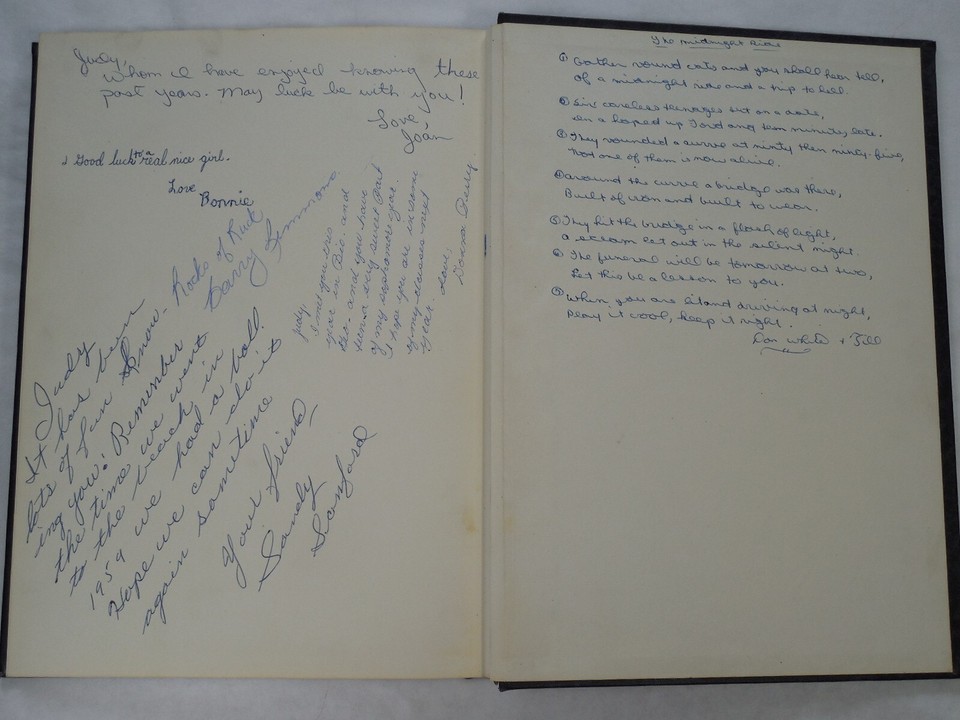 Judy,
Whom I have enjoyed knowing these
past years. May luck be with you!
Love
Joan
Good luck to a real nice girl.
Love
Bonnie
Rocks of Ruck
Barry
Judy,
in Bio. and
and you have
been a very sweet part
of my sophomore year.
I hope you are in some
of my classes next
year.
Love,
Judy
It has been
lots of fun know-
ing you! Remember
the time we went
to the beach in
1959 we had a ball
Hope we can do it
again sometime
Your friend
Sandy
Sanford
The Midnight Ride
① Gather round cats and you shall hear tell,
of a midnight ride and a trip to hell.
② Six careless teenages out on a date,
in a hoped up Ford and ten minutes late.
③ They rounded a curve at ninty then ninty-five,
Not one of them is now alive.
④ around the curve a bridge was there,
Built of iron and built to wear.
⑤ They hit the bridge in a flash of light,
a scream let out in the silent night.
⑥ The funeral will be tomorrow at two,
Let this be a lesson to you.
⑦ When you are out and driving at night,
Play it cool, keep it right.
Don White + Jill